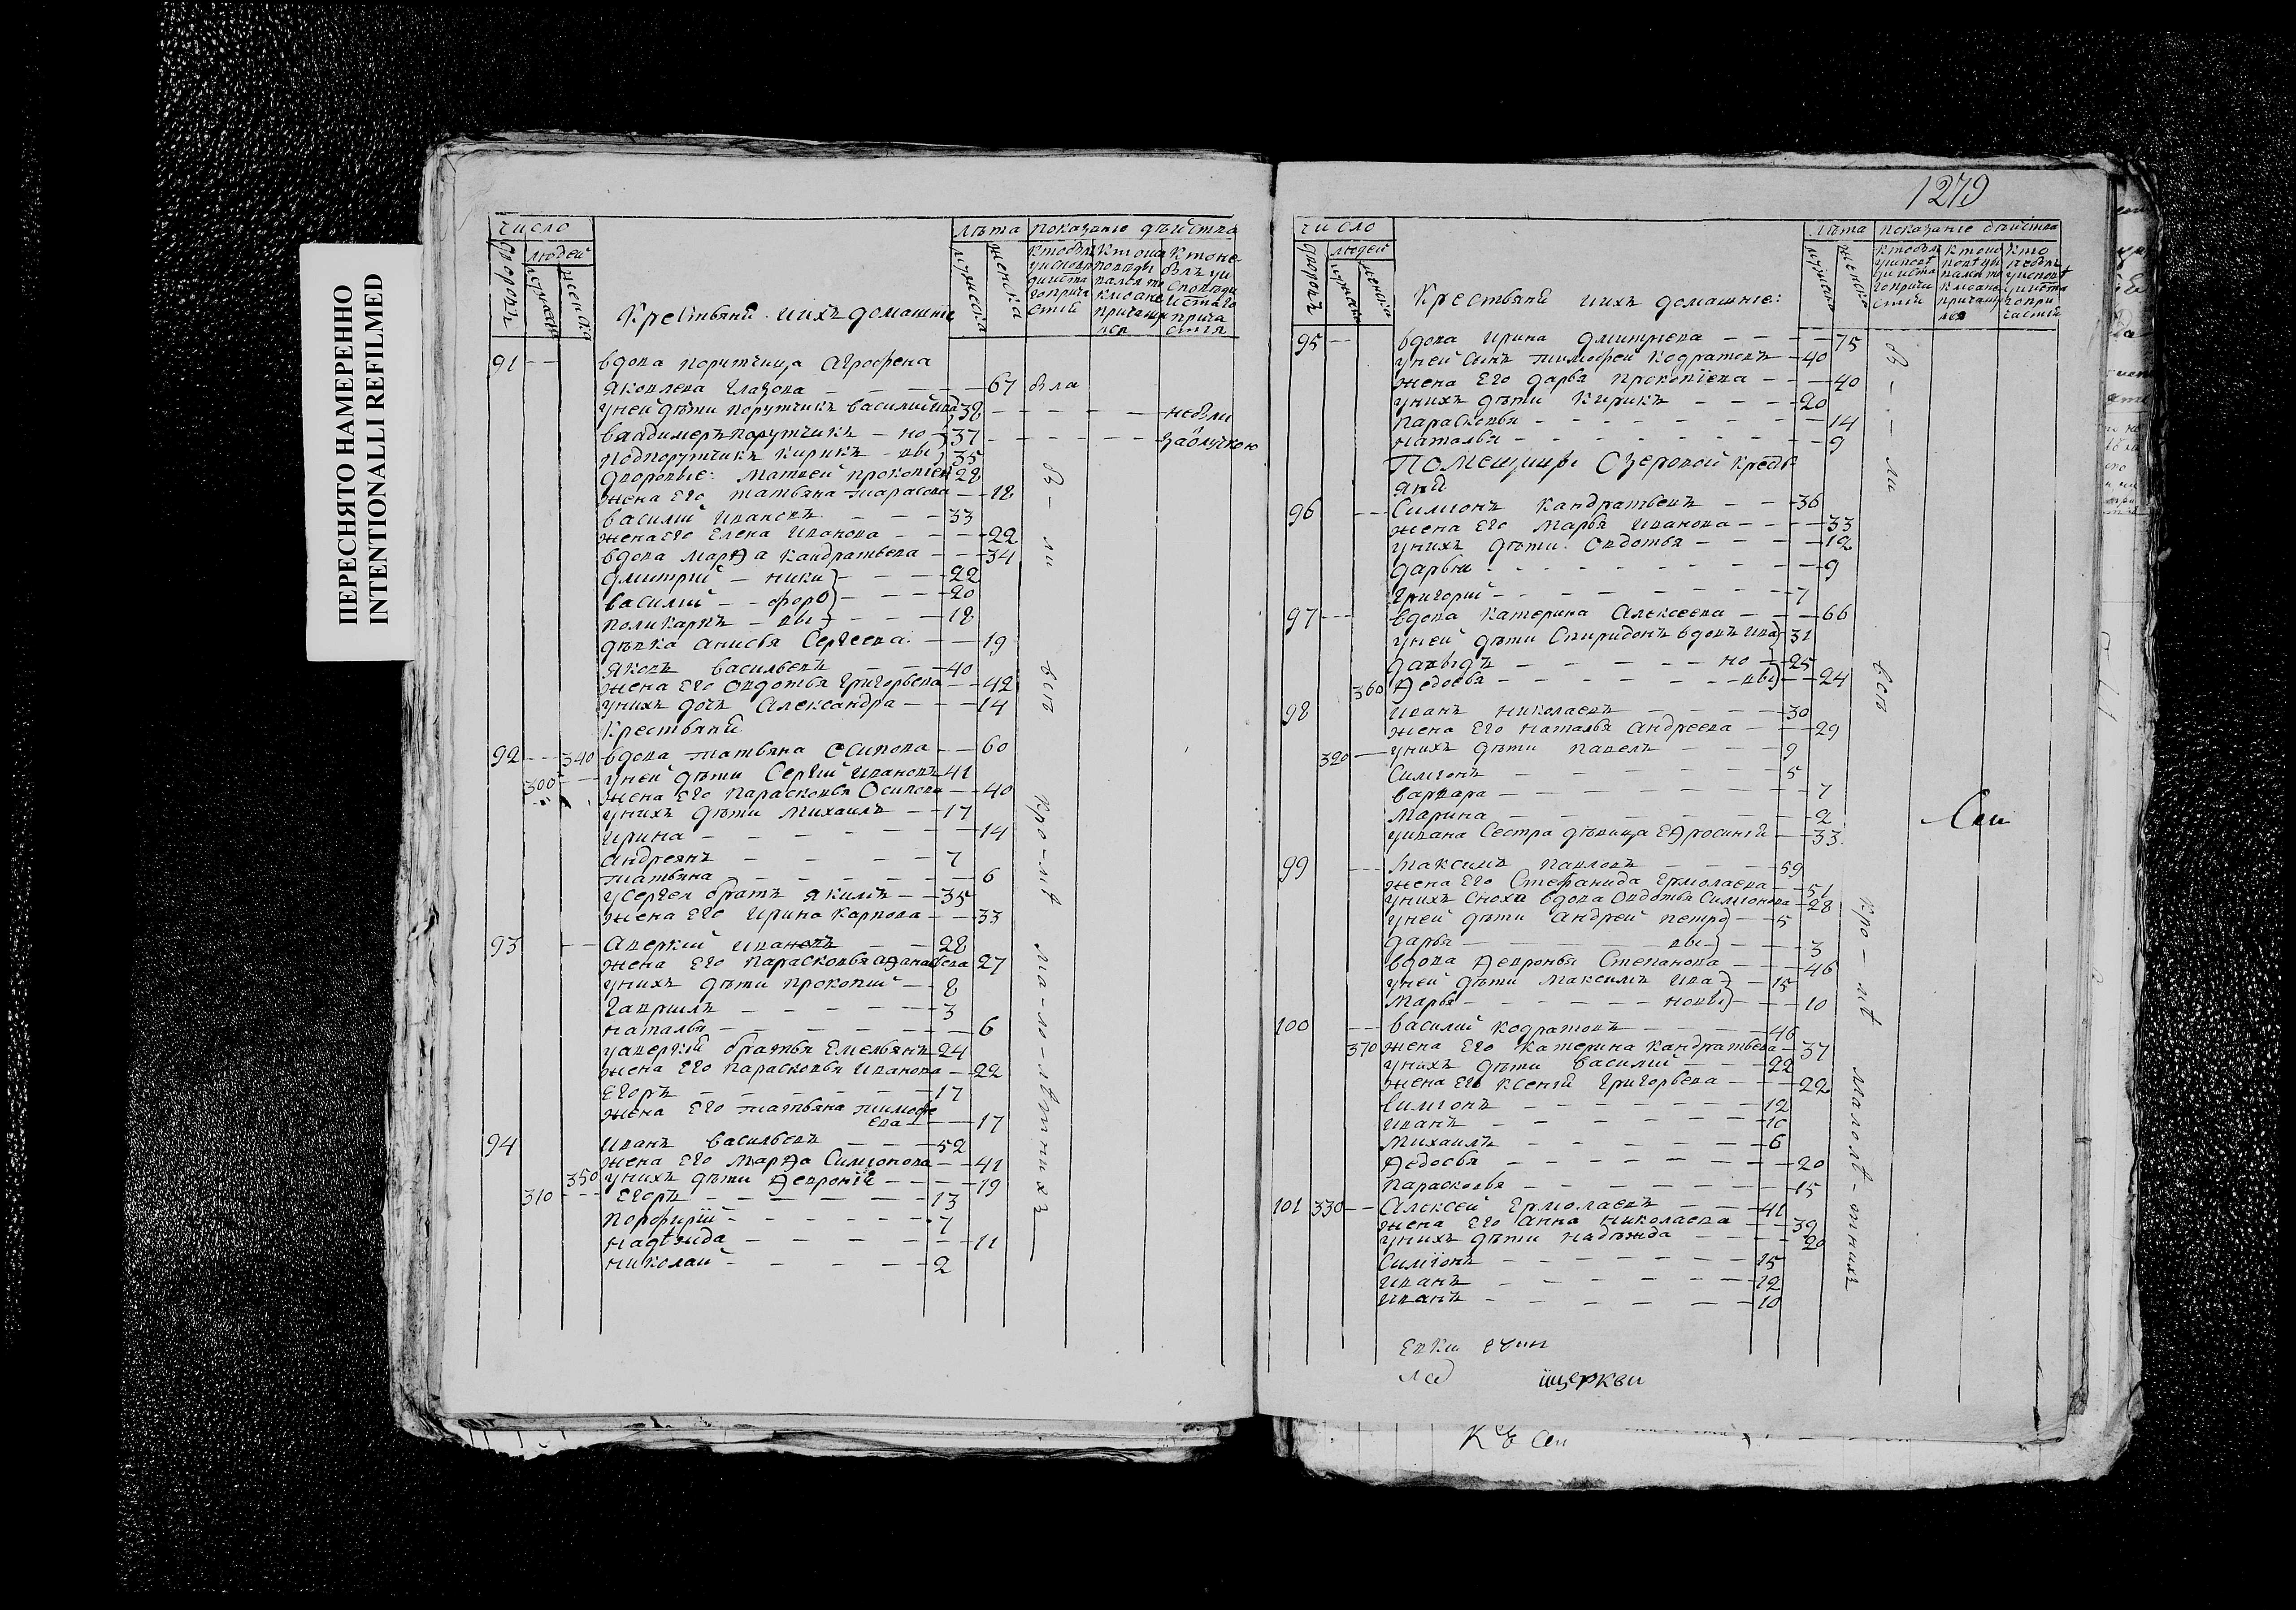 ПЕРЕСНЯТО НАМЕРЕННО
INTENTIONALLI REFILMED
число
людей
дворовъ
мужеска
женска
Крестьянѣ ихъ домашніе
лѣта
мужеска
женска
показаніе дѣйства
91 вдова порутчица Агрофена
Яковлева Глазова 67 была
у ней дѣти порутчикъ Василий ива 38 небыли
Владимеръ порутчикъ но 37
подпорутчикъ Кирикъ вы 35
Дворовые: Матвей Прокопіевъ 28
жена его Татьяна Тарасова 18
Василий Ивановъ 33
жена его Елена Иванова 22
вдова Марѳа Кандратьева 34
Дмитрий ники 22
Василий форо 20
Поликарпъ вы 18
дѣвка Анисья Сергеева 19
Яковъ Васильевъ 40
жена его Овдотья Григорьева 42
у нихъ дочь Александра 14
Крестьянѣ
92 340 вдова Татьяна Осипова 60
300 у ней дѣти Сергий Ивановъ 41
жена его Парасковья Осипова 40
у нихъ дѣти Михаилъ 17
Ирина 14
Андреянъ 7
Татьяна 6
у Сергея братъ Якимъ 35
жена его Ирина Карпова 33
93 Аверкий Ивановъ 28
жена его Парасковья Аѳанасьева 27
у нихъ дѣти Прокопий 8
Гаврилъ 3
Наталья 6
у Аверкий братья Емельянъ 24
жена его Парасковья Иванова 22
Егоръ 17
жена его Татьяна Тимофе
ева 17
94 Иванъ Васильевъ 52
жена его Марѳа Симіонова 41
350 у нихъ дѣти Ѳевроній 19
310 Егоръ 13
Порфирий 7
Надѣжда 11
Николай 2
бы - ли всѣ кро-мѣ ма-ло-лѣтнихъ
1279
число
людей
дворовъ
мужеска
женска
Крестьянѣ ихъ домашніе:
лѣта
мужеска
женска
показаніе дѣйства
95 вдова Ирина Дмитріева 75
у ней сынъ Тимофей Кодратовъ 40
жена его Дарья Прокопіева 40
у нихъ дѣти Кирикъ 20
Парасковья 14
Наталья 9
Помещицы Озеровой кресть
янѣ
96 Симіонъ Кандратьевъ 36
жена его Марья Иванова 33
у нихъ дѣти Овдотья 12
Дарья 9
Григорий 7
97 вдова Катерина Алексеева 66
у ней дѣти Спиридонъ вдовъ ива 31
Давыдъ но 25
360 Ѳедосья вы 24
98 Иванъ Николаевъ 30
жена его Наталья Андреева 29
320 у нихъ дѣти Павелъ 9
Симіонъ 5
Варвара 7
Марина 2
у Ивана сестра дѣвица Еѳросиній 33
99 Максимъ Павловъ 59
жена его Стефанида Ермолаева 51
у нихъ сноха вдова Овдотья Симіонова 28
у ней дѣти Андрей петро 5
Дарья вы 3
вдова Ѳевронья Степанова 46
у ней дѣти Максимъ ива 15
Марья новы 10
100 Василий Кодратовъ 46
370 жена его Катерина Кандратьева 37
у нихъ дѣти Василий 22
жена его Ксения Григорьева 22
Симіонъ 12
Иванъ 10
Михаилъ 6
Ѳедосья 20
Парасковья 15
101 330 Алексей Ермолаевъ 41
жена его Анна Николаева 39
у нихъ дѣти Надѣжда 20
Симіонъ 15
Иванъ 12
Иванъ 10
бы - ли всѣ кро - мѣ малолѣ-тнихъ
Свя
церкви